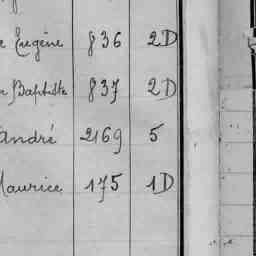 Eugène 836 2D
Baptiste 837 2D
André 2169 5
Maurice 175 1D